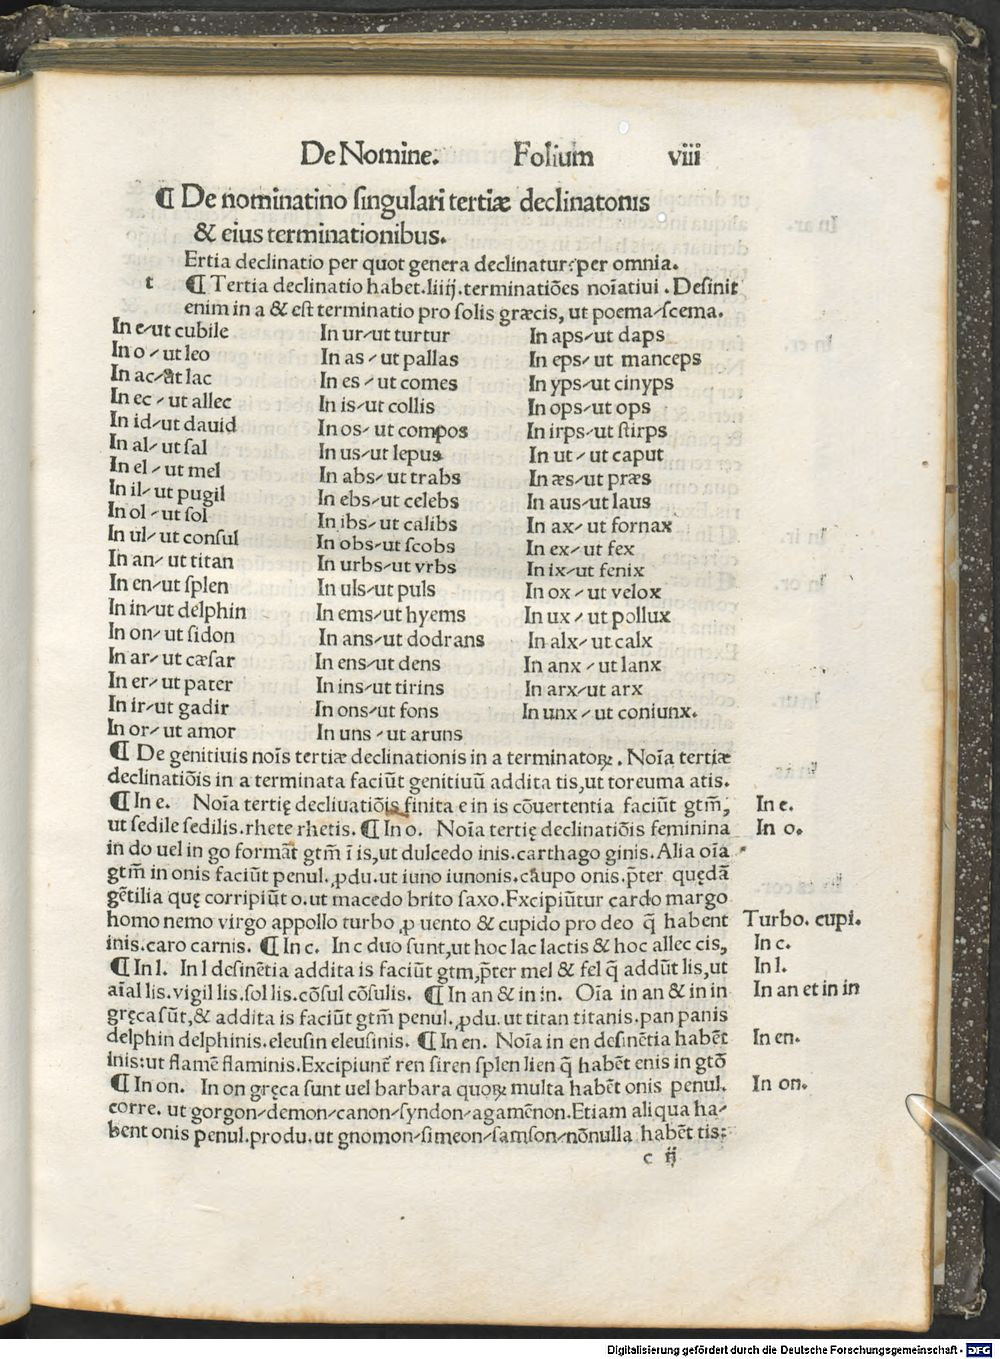 De Nomine. Folium viii
¶ De nominatino ſingulari tertiæ declinatonis
& eius terminationibus.
Ertia declinatio per quot genera declinatur: per omnia.
t ¶ Tertia declinatio habet.liiij.terminatiões noīatiui . Deſinit
enim in a & eſt terminatio pro ſolis græcis, ut poema⸗ſcema.
In e⸗ut cubile
In o ⸗ ut leo
In ac⸗ut lac
In ec ⸗ ut allec
In id⸗ut dauid
In al⸗ ut ſal
In el ⸗ ut mel
In il⸗ ut pugil
In ol ⸗ ut ſol
In ul⸗ ut conſul
In an⸗ ut titan
In en⸗ut ſplen
In in⸗ut delphin
In on⸗ ut ſidon
In ar⸗ ut cæſar
In er⸗ ut pater
In ir⸗ut gadir
In or⸗ ut amor
In ur⸗ut turtur
In as ⸗ ut pallas
In es ⸗ ut comes
In is⸗ut collis
In os⸗ ut compos
In us⸗ut lepus
In abs⸗ ut trabs
In ebs⸗ut celebs
In ibs⸗ ut calibs
In obs⸗ut ſcobs
In urbs⸗ut vrbs
In uls⸗ut puls
In ems⸗ut hyems
In ans⸗ut dodrans
In ens⸗ut dens
In ins⸗ut tirins
In ons⸗ut fons
In uns ⸗ ut aruns
In aps⸗ut daps
In eps⸗ut manceps
In yps⸗ut cinyps
In ops⸗ut ops
In irps⸗ut ſtirps
In ut ⸗ ut caput
In æs⸗ut præs
In aus⸗ut laus
In ax⸗ ut fornax
In ex⸗ ut fex
In ix⸗ut fenix
In ox ⸗ ut velox
In ux ⸗ ut pollux
In alx⸗ ut calx
In anx ⸗ ut lanx
In arx⸗ut arx
In unx ⸗ ut coniunx.
¶ De genitiuis noīs tertiæ declinationis in a terminatoꝝ . Noīa tertiæ
declinatiõis in a terminata faciũt genitiuũ addita tis, ut toreuma atis.
¶ In e. Noīa tertię decliuatiõis finita e in is cõuertentia faciũt gtm̃,
ut ſedile ſedilis.rhete rhetis. ¶ In o. Noīa tertię declinatiõis feminina
in do uel in go formãt gtm̃ ī is,ut dulcedo inis.carthago ginis.Alia oīa
gtm̃ in onis faciũt penul.ꝓdu.ut iuno iunonis.caupo onis.p̃ter quędã
gẽtilia quę corripiũt o.ut macedo brito ſaxo.Excipiũtur cardo margo
homo nemo virgo appollo turbo ꝓ uento & cupido pro deo q̃ habent
inis.caro carnis. ¶ In c. In c duo ſunt,ut hoc lac lactis & hoc allec cis,
¶ In l. In l deſinẽtia addita is faciũt gtm,p̃ter mel & fel q̃ addũt lis,ut
aīal lis.vigil lis.ſol lis.cõſul cõſulis. ¶ In an & in in. Oīa in an & in in
gręca ſũt,& addita is faciũt gtm̃ penul.ꝓdu. ut titan titanis.pan panis
delphin delphinis.eleuſin eleuſinis. ¶ In en. Noīa in en deſinẽtia habẽt
inis:ut flamẽ flaminis.Excipiunt̃ ren ſiren ſplen lien q̃ habẽt enis in gtõ
¶ In on. In on gręca ſunt uel barbara quoꝝ multa habẽt onis penul.
corre. ut gorgon⸗demon⸗canon⸗ſyndon⸗agamẽnon.Etiam aliqua ha⸗
bent onis penul.produ.ut gnomon⸗ſimeon⸗ſamſon⸗nõnulla habẽt tis:
c ij
In e.
In o.
Turbo. cupi.
In c.
In l.
In an et in in
In en.
In on.
Digitalisierung gefördert durch die Deutsche Forschungsgemeinschaft - DFG